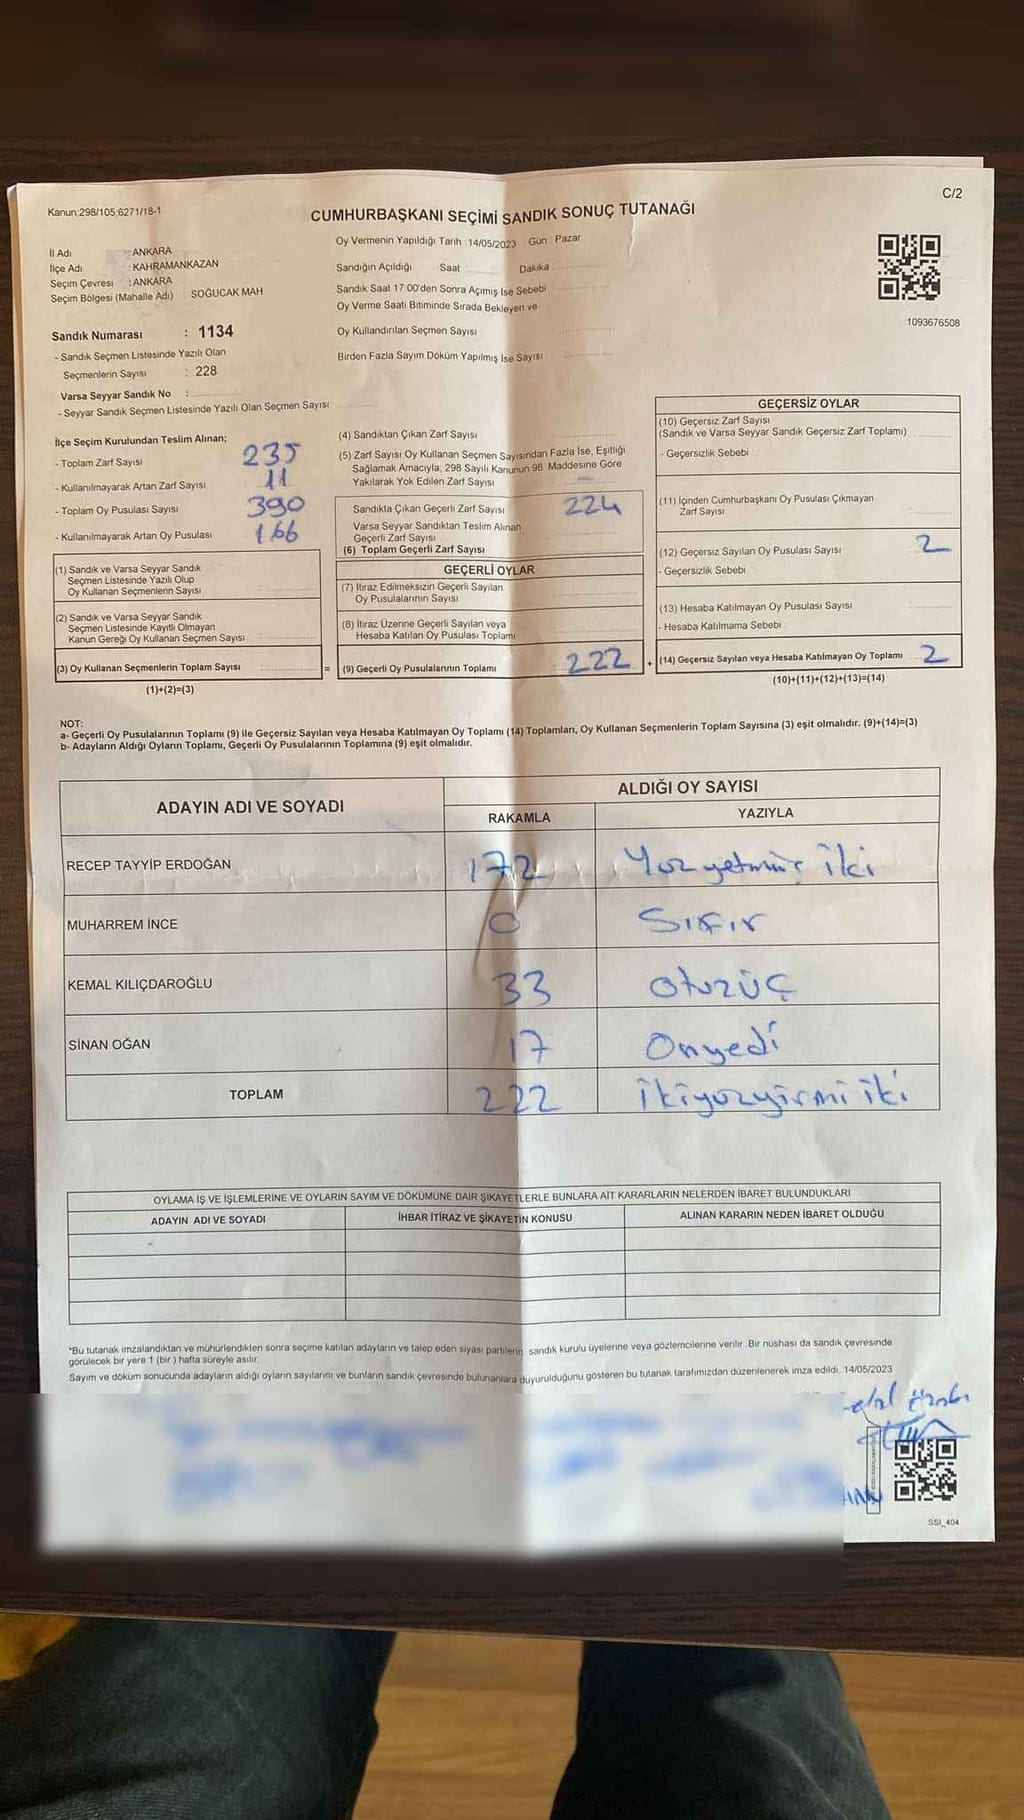 C/2
Kanun:298/105;6271/18-1
CUMHURBAŞKANI SEÇİMİ SANDIK SONUÇ TUTANAĞI
İl Adı : ANKARA
İlçe Adı : KAHRAMANKAZAN
Seçim Çevresi : ANKARA
Seçim Bölgesi (Mahalle Adı) SOĞUCAK MAH
Oy Vermenin Yapıldığı Tarih : 14/05/2023 Gün : Pazar
Sandığın Açıldığı Saat Dakika
Sandık Saat 17:00'den Sonra Açımış İse Sebebi
Oy Verme Saati Bitiminde Sırada Bekleyen ve
Oy Kullandırılan Seçmen Sayısı
Birden Fazla Sayım Döküm Yapılmış İse Sayısı
1093676508
Sandık Numarası : 1134
- Sandık Seçmen Listesinde Yazılı Olan
Seçmenlerin Sayısı : 228
Varsa Seyyar Sandık No :
- Seyyar Sandık Seçmen Listesinde Yazılı Olan Seçmen Sayısı
İlçe Seçim Kurulundan Teslim Alınan;
- Toplam Zarf Sayısı 235
- Kullanılmayarak Artan Zarf Sayısı 11
- Toplam Oy Pusulası Sayısı 390
- Kullanılmayarak Artan Oy Pusulası 166
(1) Sandık ve Varsa Seyyar Sandık
Seçmen Listesinde Yazılı Olup
Oy Kullanan Seçmenlerin Sayısı
(2) Sandık ve Varsa Seyyar Sandık
Seçmen Listesinde Kayıtlı Olmayan
Kanun Gereği Oy Kullanan Seçmen Sayısı
(3) Oy Kullanan Seçmenlerin Toplam Sayısı
(1)+(2)=(3)
=
(4) Sandıktan Çıkan Zarf Sayısı
(5) Zarf Sayısı Oy Kullanan Seçmen Sayısından Fazla İse, Eşitliği
Sağlamak Amacıyla, 298 Sayılı Kanunun 98. Maddesine Göre
Yakılarak Yok Edilen Zarf Sayısı
Sandıkta Çıkan Geçerli Zarf Sayısı 224
Varsa Seyyar Sandıktan Teslim Alınan
Geçerli Zarf Sayısı
(6) Toplam Geçerli Zarf Sayısı
GEÇERLİ OYLAR
(7) İtiraz Edilmeksizin Geçerli Sayılan
Oy Pusulalarının Sayısı
(8) İtiraz Üzerine Geçerli Sayılan veya
Hesaba Katılan Oy Pusulası Toplamı
(9) Geçerli Oy Pusulalarının Toplamı 222
+
GEÇERSİZ OYLAR
(10) Geçersiz Zarf Sayısı
(Sandık ve Varsa Seyyar Sandık Geçersiz Zarf Toplamı)
- Geçersizlik Sebebi
(11) İçinden Cumhurbaşkanı Oy Pusulası Çıkmayan
Zarf Sayısı
(12) Geçersiz Sayılan Oy Pusulası Sayısı 2
- Geçersizlik Sebebi
(13) Hesaba Katılmayan Oy Pusulası Sayısı
- Hesaba Katılmama Sebebi
(14) Geçersiz Sayılan veya Hesaba Katılmayan Oy Toplamı 2
(10)+(11)+(12)+(13)=(14)
NOT:
a- Geçerli Oy Pusulalarının Toplamı (9) ile Geçersiz Sayılan veya Hesaba Katılmayan Oy Toplamı (14) Toplamları, Oy Kullanan Seçmenlerin Toplam Sayısına (3) eşit olmalıdır. (9)+(14)=(3)
b- Adayların Aldığı Oyların Toplamı, Geçerli Oy Pusulalarının Toplamına (9) eşit olmalıdır.
ADAYIN ADI VE SOYADI ALDIĞI OY SAYISI
RAKAMLA YAZIYLA
RECEP TAYYİP ERDOĞAN 172 Yüzyetmiş iki
MUHARREM İNCE 0 Sıfır
KEMAL KILIÇDAROĞLU 33 otuzüç
SİNAN OĞAN 17 Onyedi
TOPLAM 222 İkiyüzyirmi iki
OYLAMA İŞ VE İŞLEMLERİNE VE OYLARIN SAYIM VE DÖKÜMÜNE DAİR ŞİKAYETLERLE BUNLARA AİT KARARLARIN NELERDEN İBARET BULUNDUKLARI
ADAYIN ADI VE SOYADI İHBAR İTİRAZ VE ŞİKAYETİN KONUSU ALINAN KARARIN NEDEN İBARET OLDUĞU
*Bu tutanak imzalandıktan ve mühürlendikten sonra seçime katılan adayların ve talep eden siyasi partilerin sandık kurulu üyelerine veya gözlemcilerine verilir. Bir nüshası da sandık çevresinde
görülecek bir yere 1 (bir ) hafta süreyle asılır.
Sayım ve döküm sonucunda adayların aldığı oyların sayılarını ve bunların sandık çevresinde bulunanlara duyurulduğunu gösteren bu tutanak tarafımızdan düzenlenerek imza edildi. 14/05/2023
SSI_404